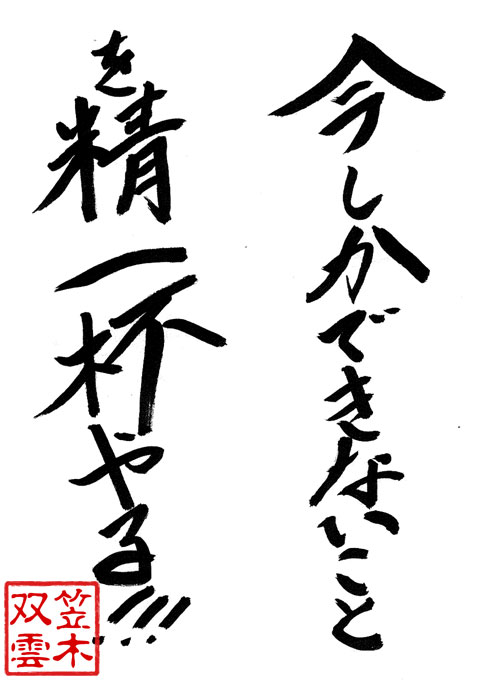 今しかできないこと
を精一杯やる!!!
笠木
双雲